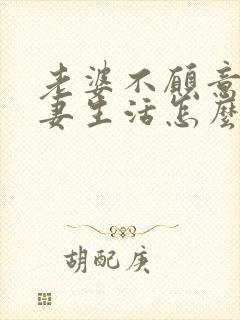 老婆不愿意
妻生活怎麼
胡配庚